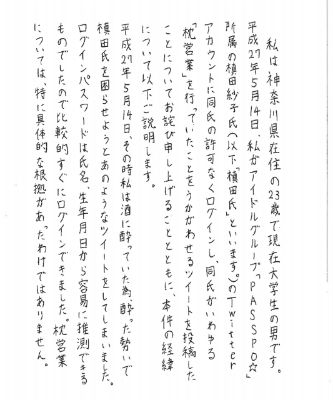 私は神奈川県在住の23歳で現在大学生の男です。
平成27年5月14日、私がアイドルグループ、PASSPO☆
所属の槙田紗子氏(以下「槙田氏」といいます。)のTwitter
アカウントに同氏の許可なくログインし、同氏がいわゆる
「枕営業」を行っていたことをうかがわせるツイートを投稿した
ことについてお詫び申し上げることとともに、本件の経緯
について以下ご説明します。
平成27年5月14日、その時私は酒に酔っていた為、酔った勢いで
槙田氏を困らせようとあのようなツイートをしてしまいました。
ログインパスワードは氏名、生年月日から容易に推測できる
ものでしたので比較的すぐにログインできました。枕営業
については、特に具体的な根拠があったわけではありません。